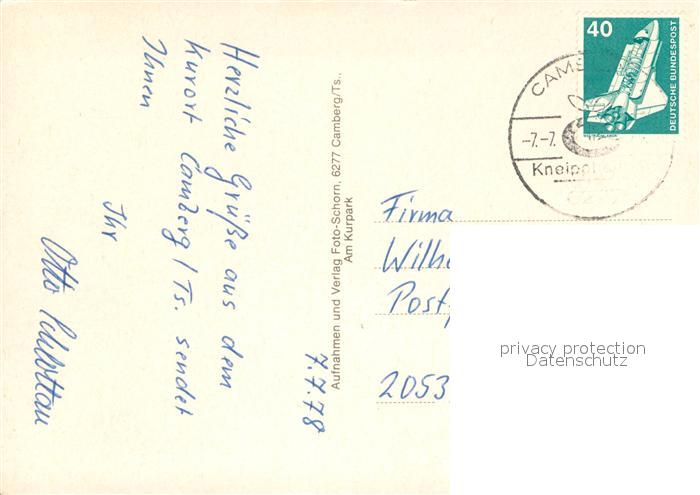 Herzliche Grüße aus dem
Kurort Camberg/Ts. sendet
Ihnen
Ihr
Otto
7.7.78
Aufnahmen und Verlag Foto-Schorn, 6277 Camberg/Ts.,
Am Kurpark
40
DEUTSCHE BUNDESPOST
CAMB
-7.-7.
Kneipp
Firma
Wilh
Post
2053
privacy protection
Datenschutz